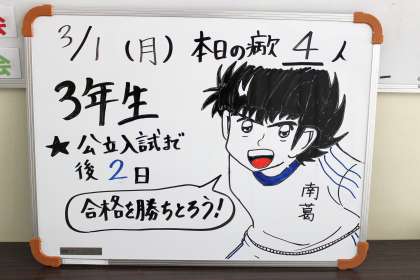 3/1(月) 本日の病欠 4人
3年生
★公立入試まで
後2日
合格を勝ちとろう!
南葛
会